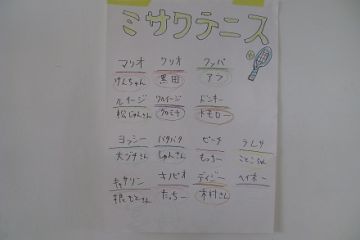 ミサワテニス
マリオ クリオ ファバ
けんちゃん 黒田 アフ
ルイージ ワルイージ ドンキー
松じゅんさん クロミナ トモロー
ヨッシー パタパタ ピーチ テレサ
大ヅチさん しゅんさん もっちー ことこちゃん
キャサリン キノピオ デイジー ヘイホー
たっちー 木村さん